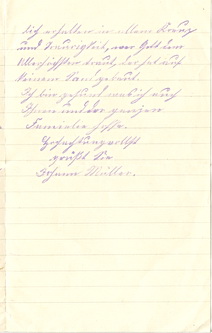 dich erhalten in allem Kreuz
und Traurigkeit, wer Gott dem
Allerhöchsten traut, der hat auf
keinem Sand gebaut.
Ich bin gesund was ich auch
Ihnen und der ganzen
Fameelie hoffe.
Hochachtungsvollst
grüßt Sie
Johann Müller.